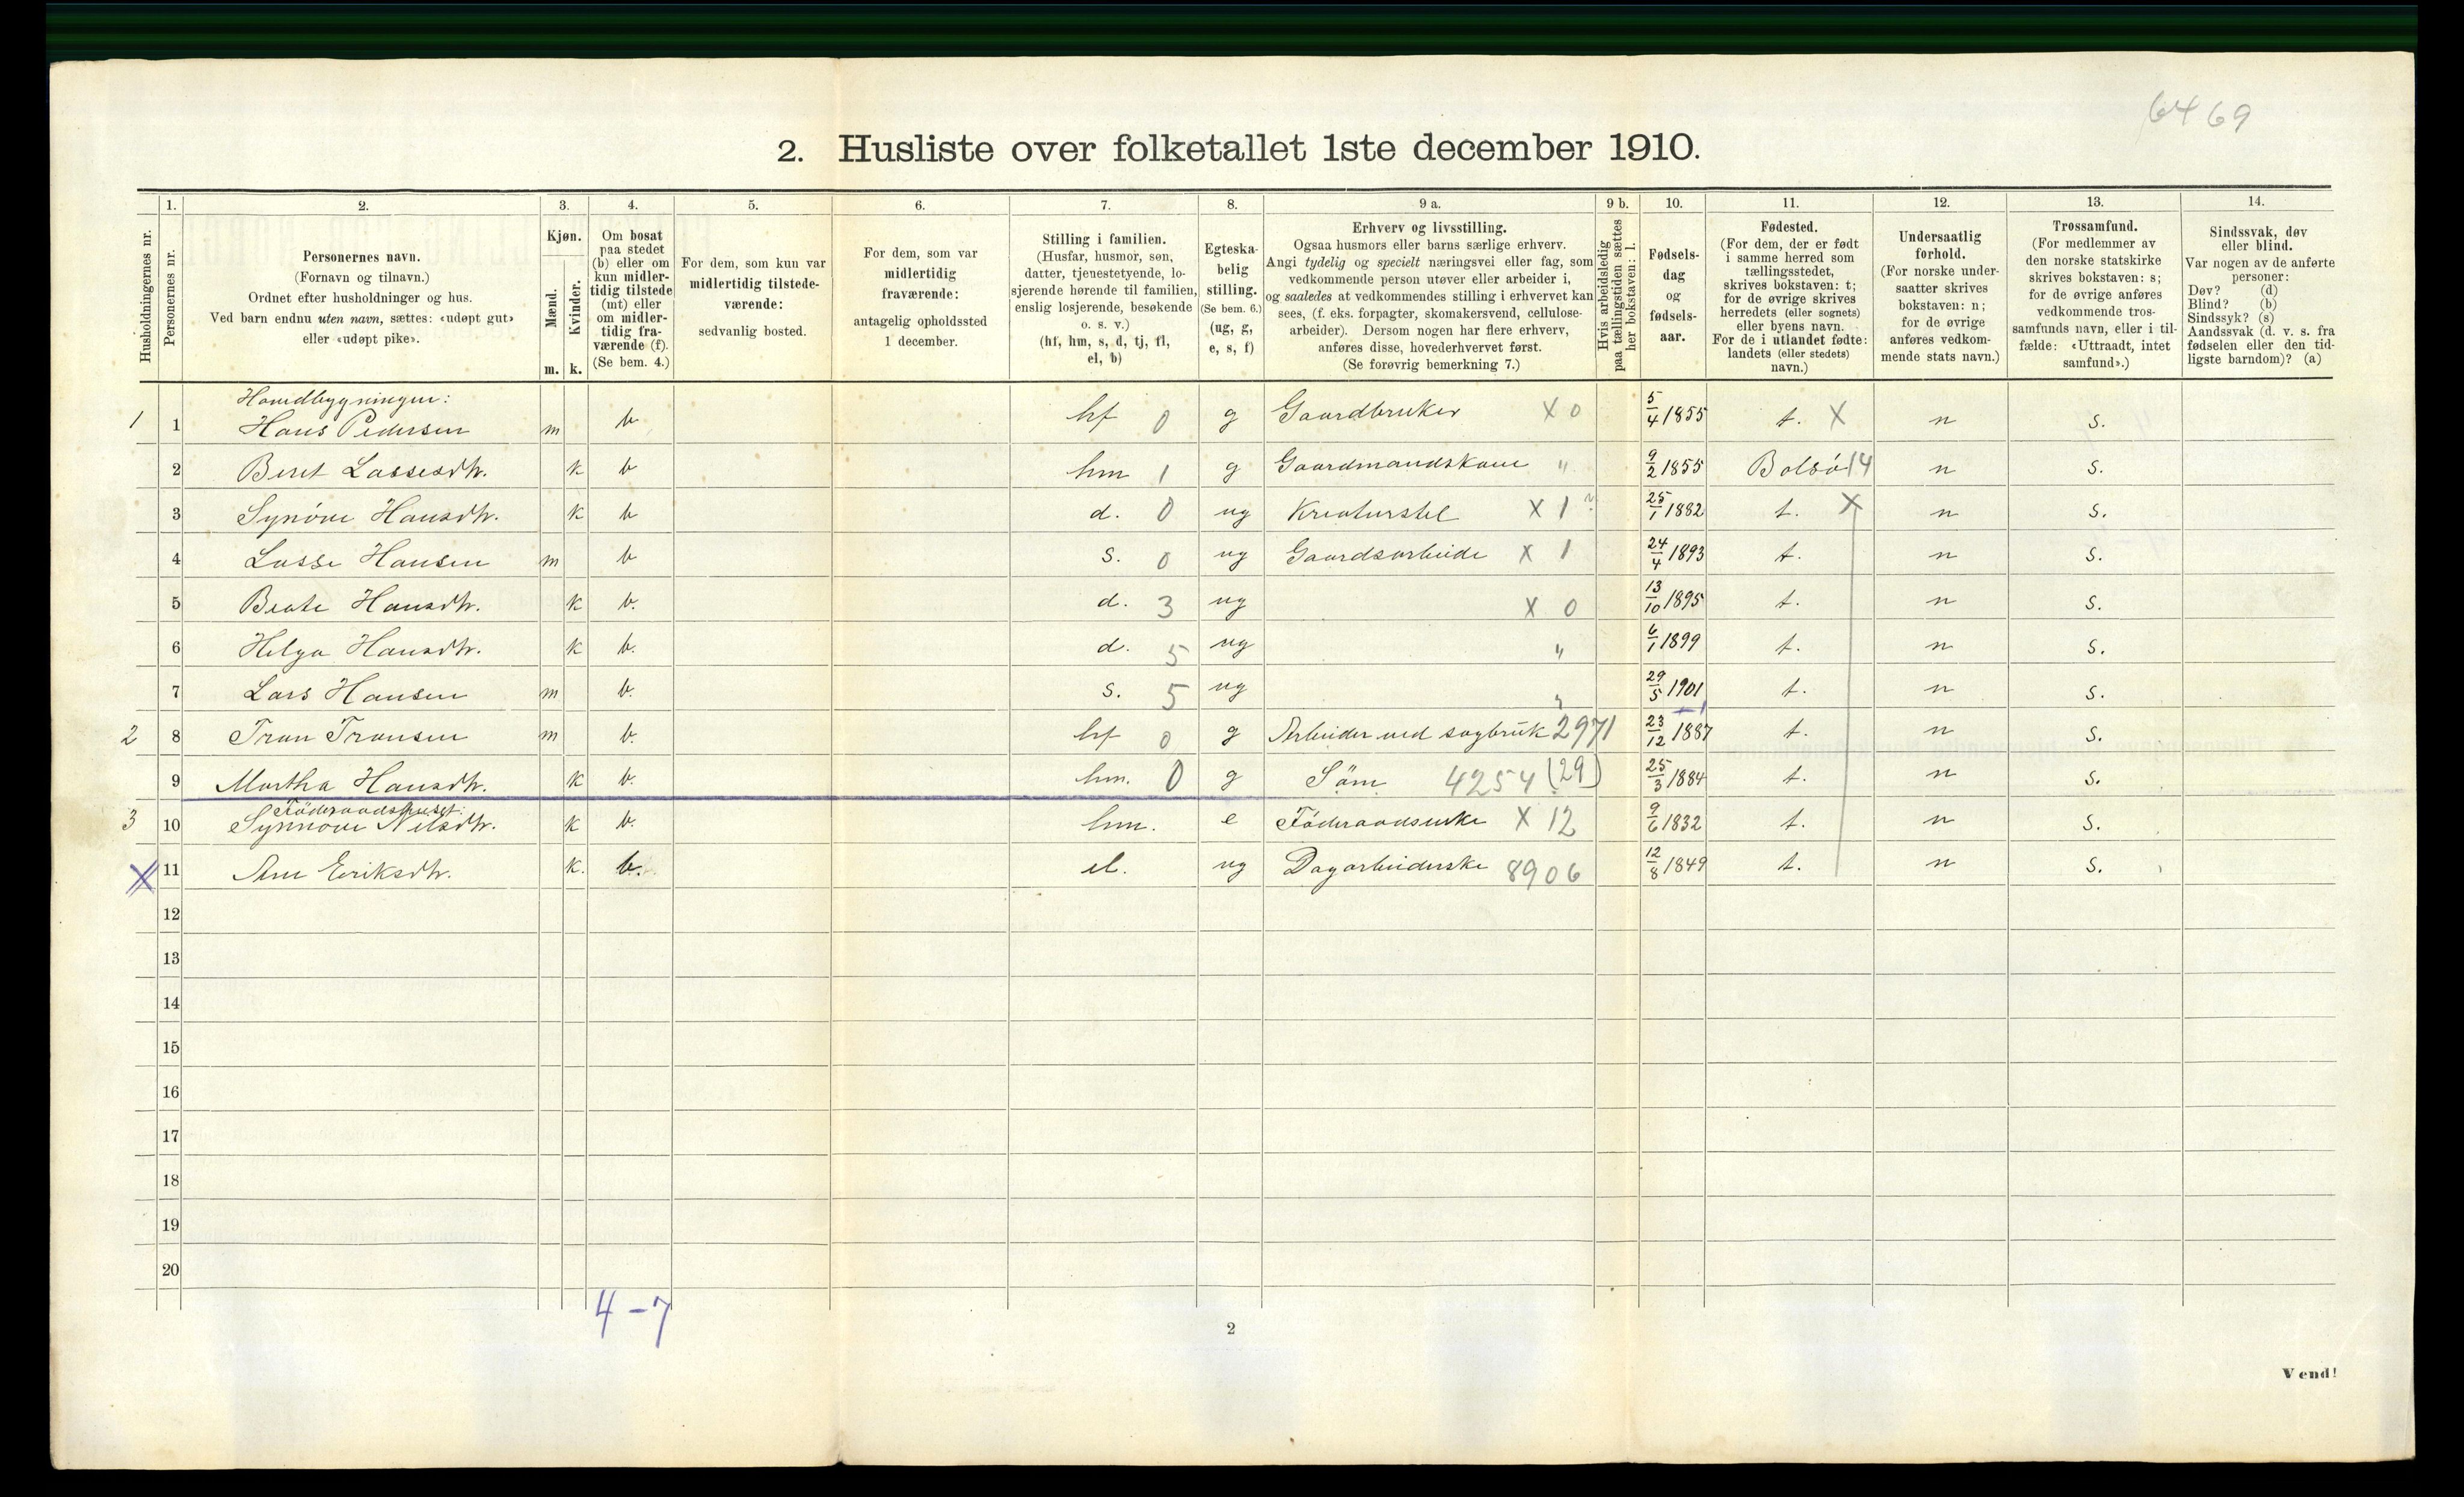 6469
2. Husliste over folketallet 1ste december 1910.
Husholdningernes nr.
1.
Personernes nr.
2.
Personernes navn.
(Fornavn og tilnavn.)
Ordnet efter husholdninger og hus.
Ved barn endnu uten navn, sættes: «udøpt gut»
eller «udøpt pike».
3.
Kjøn.
Mænd.
Kvinder.
m. k.
4.
Om bosat
paa stedet
(b) eller om
kun midler-
tidig tilstede
(mt) eller
om midler-
tidig fra-
værende (f).
(Se bem. 4.)
5.
For dem, som kun var
midlertidig tilstede-
værende:
sedvanlig bosted.
6.
For dem, som var
midlertidig
fraværende:
antagelig opholdssted
1 december.
7.
Stilling i familien.
(Husfar, husmor, søn,
datter, tjenestetyende, lo-
sjerende hørende til familien,
enslig losjerende, besøkende
o. s. v.)
(hf, hm, s, d, tj, fl,
el, b)
8.
Egteska-
belig
stilling.
(Se bem. 6.)
(ug, g,
e, s, f)
9 a.
Erhverv og livsstilling.
Ogsaa husmors eller barns særlige erhverv.
Angi tydelig og specielt næringsvei eller fag, som
vedkommende person utøver eller arbeider i,
og saaledes at vedkommendes stilling i erhvervet kan
sees, (f. eks. forpagter, skomakersvend, cellulose-
arbeider). Dersom nogen har flere erhverv,
anføres disse, hovederhvervet først.
(Se forøvrig bemerkning 7.)
9 b.
Hvis arbeidsledig
paa tællingstiden sættes
her bokstaven: l.
10.
Fødsels-
dag
og
fødsels-
aar.
11.
Fødested.
(For dem, der er født
i samme herred som
tællingsstedet,
skrives bokstaven: t;
for de øvrige skrives
herredets (eller sognets)
eller byens navn.
For de i utlandet fødte:
landets (eller stedets)
navn.)
12.
Undersaatlig
forhold.
(For norske under-
saatter skrives
bokstaven: n;
for de øvrige
anføres vedkom-
mende stats navn.)
13.
Trossamfund.
(For medlemmer av
den norske statskirke
skrives bokstaven: s;
for de øvrige anføres
vedkommende tros-
samfunds navn, eller i til-
fælde: «Uttraadt, intet
samfund».)
14.
Sindssvak, døv
eller blind.
Var nogen av de anførte
personer:
Døv? (d)
Blind? (b)
Sindssyk? (s)
Aandssvak (d. v. s. fra
fødselen eller den tid-
ligste barndom)? (a)
Hovedbygningen:
1 1 Hans Pedersen m b hf 0 g Gaardbruker X 0 5/4 1855 t. X n s.
2 Beret Lassesdtr. k b hm 1 g Gaardmandskone " 9/2 1855 Bolsö 14 n s.
3 Synöve Hansdtr. k b d. 0 ug Kreaturstel X 1 ? 25/1 1882 t. X n s.
4 Lasse Hansen m b s. 0 ug Gaardsarbeide X 1 24/4 1893 t. n s.
5 Beate Hansdtr. k b. d. 3 ug X 0 13/10 1895 t. n s.
6 Helga Hansdtr. k b. d. 5 ug " 6/1 1899 t. n s.
7 Lars Hansen m b. s. 5 ug " 29/5 1901 t. n s.
2 8 Tron Tronsen m b. hf 0 g Arbeider ved sagbruk 2971 23/12 1887 t. n s.
9 Martha Hansdtr. k b. hm. 0 g Söm 4254 (29) 25/3 1884 t. n s.
Föderaadshuset:
3 10 Synnöve Nilsdtr. k b. hm. e Föderaadsenke X 12 9/6 1832 t. n s.
X 11 Ane Eriksdtr. k. b. el. ug Dagarbeiderske 8906 12/8 1849 t. n s.
12
13
14
15
16
17
18
19
20
4 - 7
2
Vend!